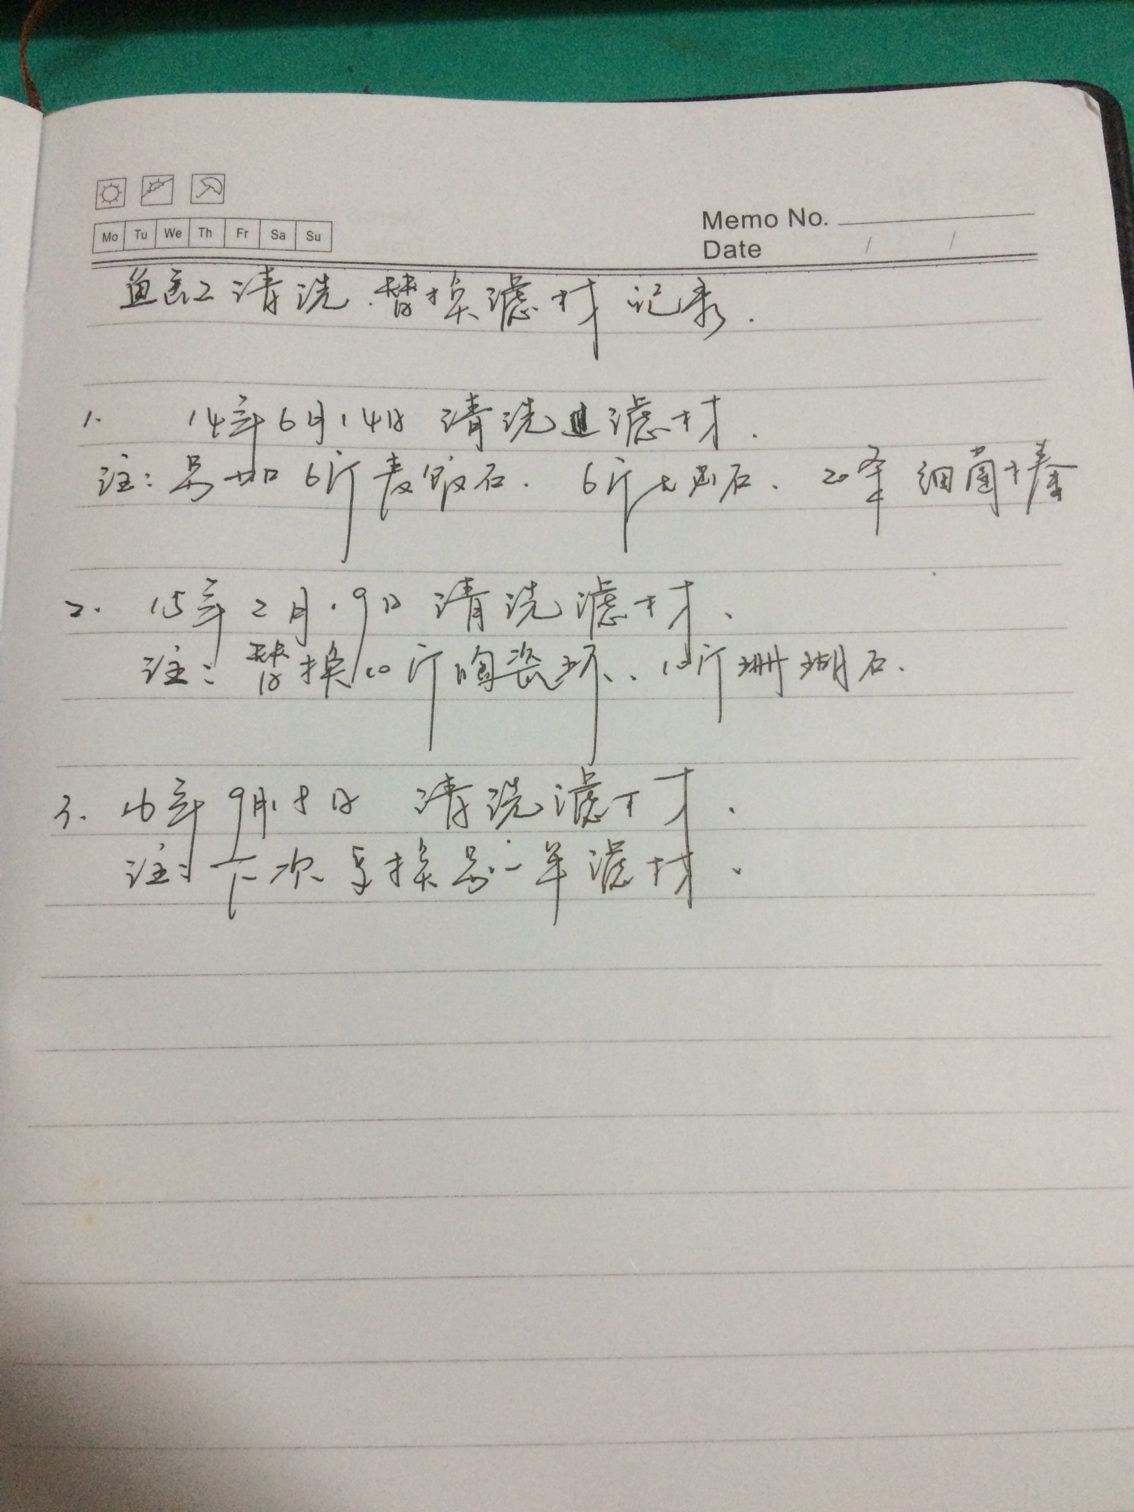 Mo Tu We Th Fr Sa Su
Memo No.
Date / /
鱼缸清洗.替换滤材 记录.
1. 14年6月14日 清洗过滤材.
注: 另加 6斤麦饭石. 6斤火山石. 20 细菌
2. 15年2月.9日 清洗滤材.
注: 替换10斤陶瓷环. 10斤珊瑚石.
3. 16年9月.8日 清洗滤材.
注: 下次 换另一半滤材.